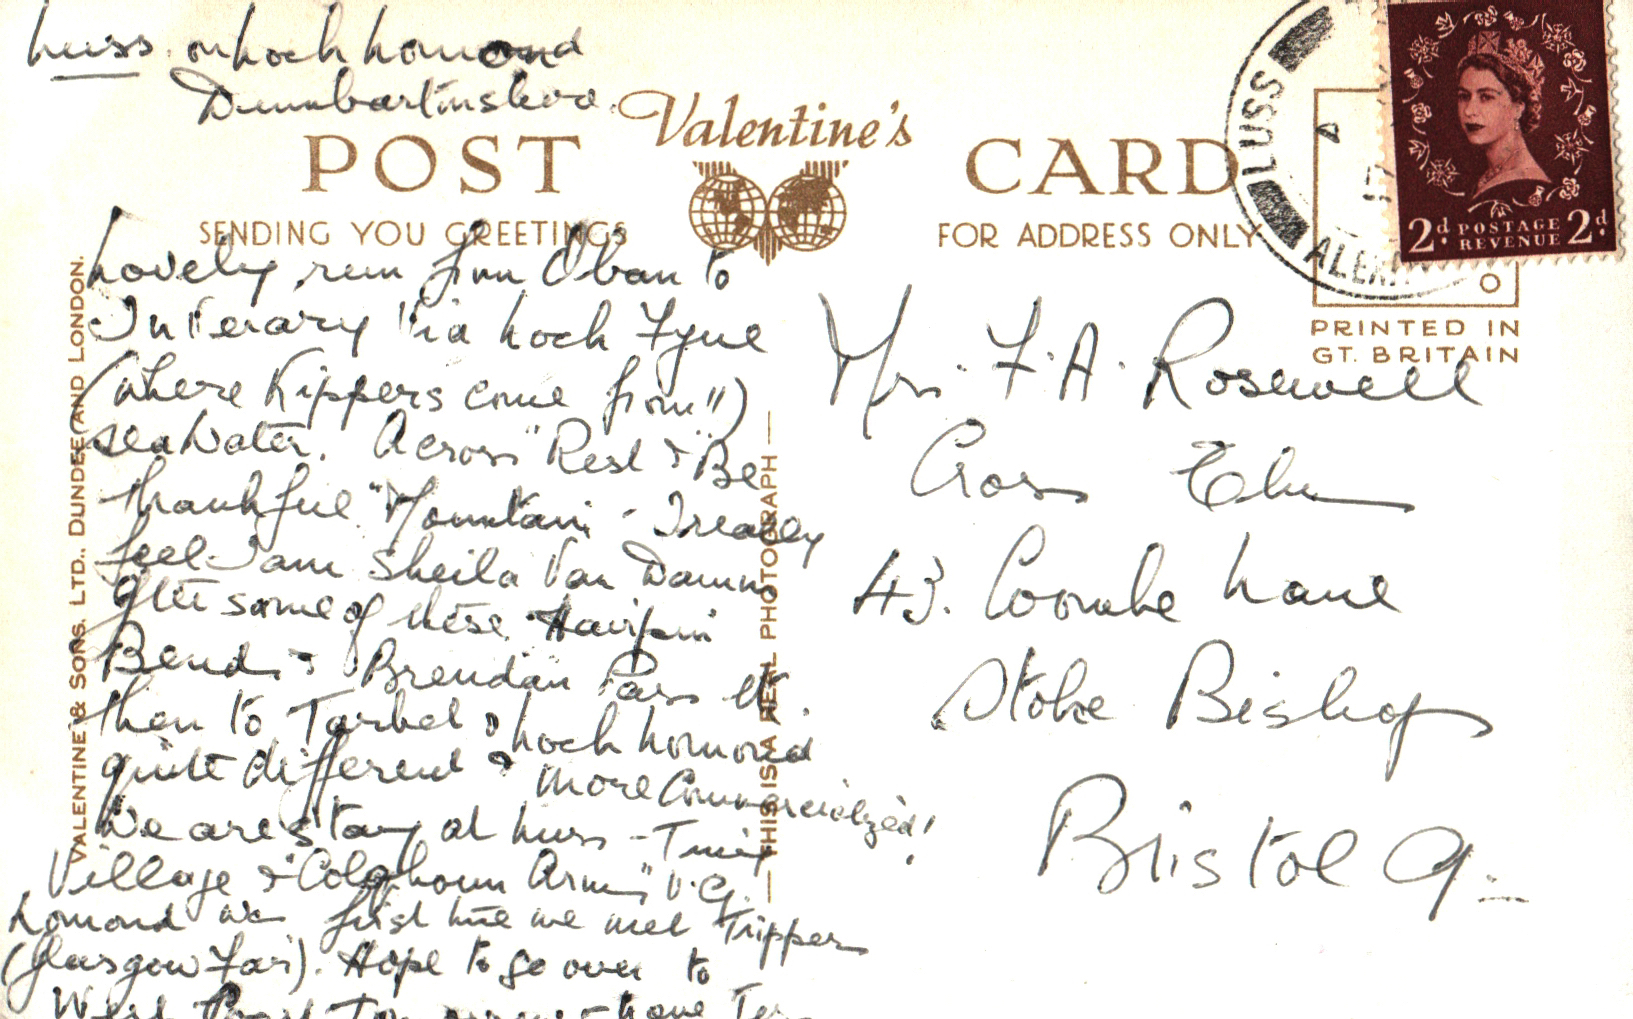 Luss. on Loch Lomond
Dumbartonshire.
Valentine's
POST CARD
SENDING YOU GREETINGS
FOR ADDRESS ONLY
LUSS
2d POSTAGE REVENUE 2d
PRINTED IN
GT. BRITAIN
VALENTINE & SONS. LTD., DUNDEE AND LONDON.
THIS IS A REAL PHOTOGRAPH
Lovely run from Oban to
Inverary via Loch Fyne
(where Kippers come from!!)
sea water. Across "Rest & Be
thankful" Mountain - I really
feel I am Sheila Van Damm
after some of these Hairpin
Bends & Brendan Pass etc.
then to Tarbet & Loch Lomond
quite different & more Commercialized!
We are stay at Luss - Tiny
Village & "Colqhoun Arms" V.G.
Lomond was first time we met Trippers
(Glasgow Fair). Hope to go over to
West Coast
Mrs. F. A. Rosewell
Cross Elms
43. Coombe Lane
Stoke Bishop
Bristol 9.